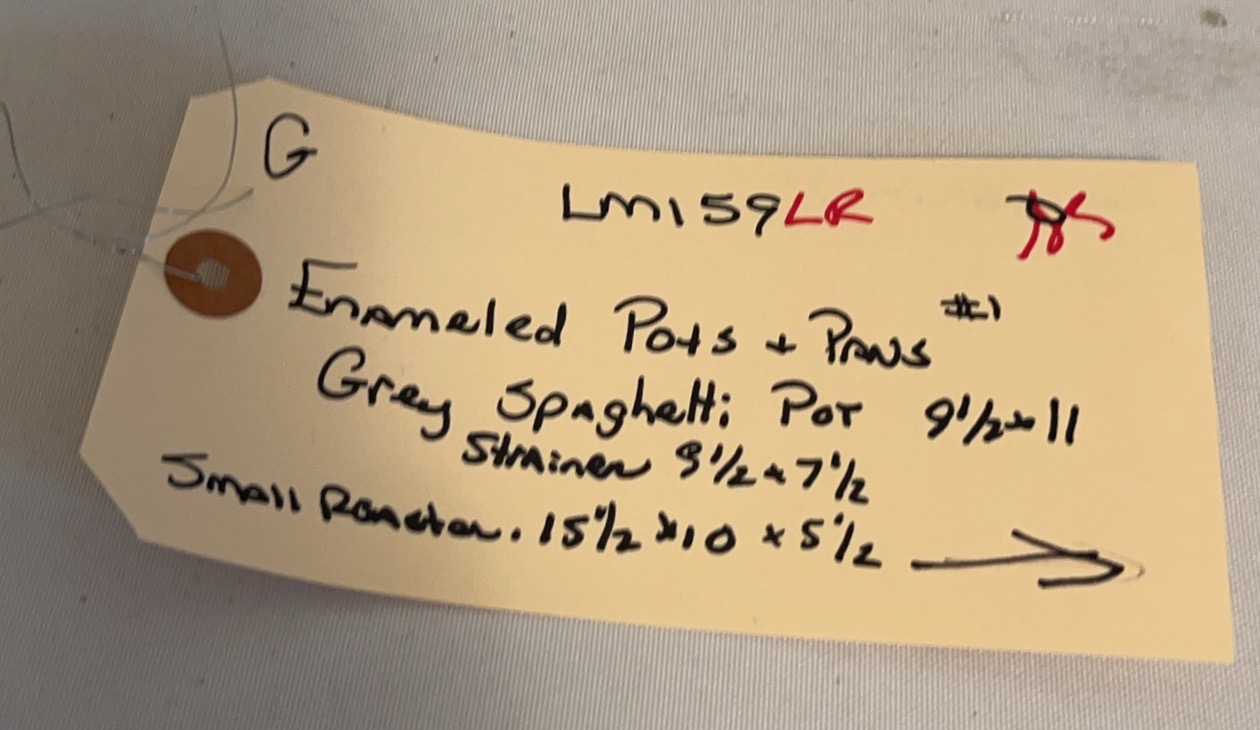 G
LM159LR
Enameled Pots + Pans #1
Grey Spaghetti Pot 9 1/2 x 11
Strainer 9 1/2 x 7 1/2
Small Roaster. 15 1/2 x 10 x 5 1/2 →